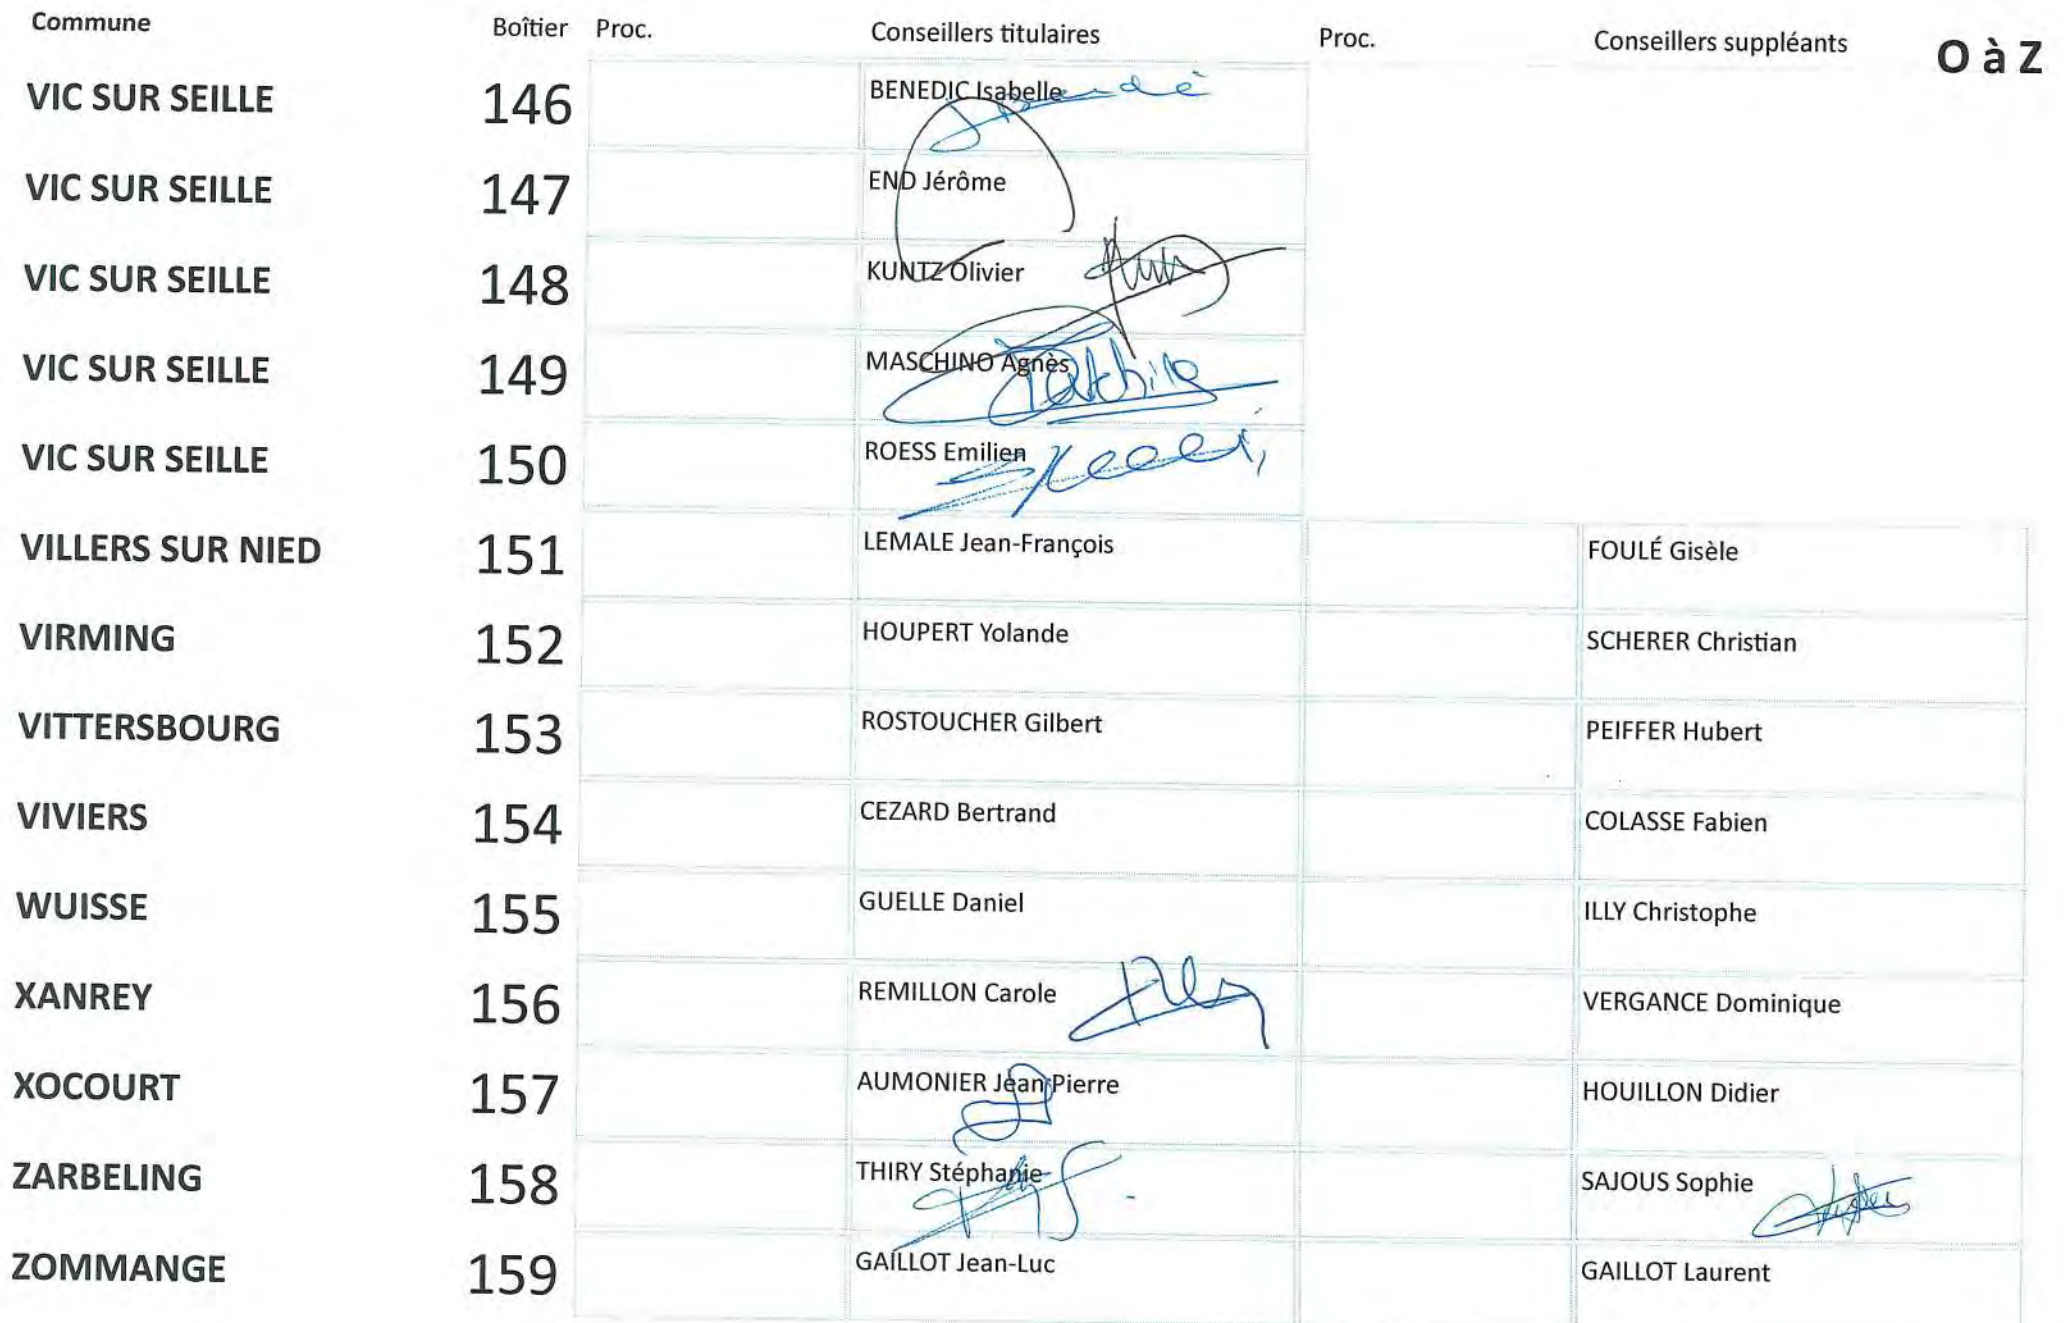 Commune Boîtier Proc. Conseillers titulaires Proc. Conseillers suppléants O à Z
VIC SUR SEILLE 146 BENEDIC Isabelle
VIC SUR SEILLE 147 END Jérôme
VIC SUR SEILLE 148 KUNTZ Olivier
VIC SUR SEILLE 149 MASCHINO Agnès
VIC SUR SEILLE 150 ROESS Emilien
VILLERS SUR NIED 151 LEMALE Jean-François FOULÉ Gisèle
VIRMING 152 HOUPERT Yolande SCHERER Christian
VITTERSBOURG 153 ROSTOUCHER Gilbert PEIFFER Hubert
VIVIERS 154 CEZARD Bertrand COLASSE Fabien
WUISSE 155 GUELLE Daniel ILLY Christophe
XANREY 156 REMILLON Carole VERGANCE Dominique
XOCOURT 157 AUMONIER Jean Pierre HOUILLON Didier
ZARBELING 158 THIRY Stéphanie SAJOUS Sophie
ZOMMANGE 159 GAILLOT Jean-Luc GAILLOT Laurent